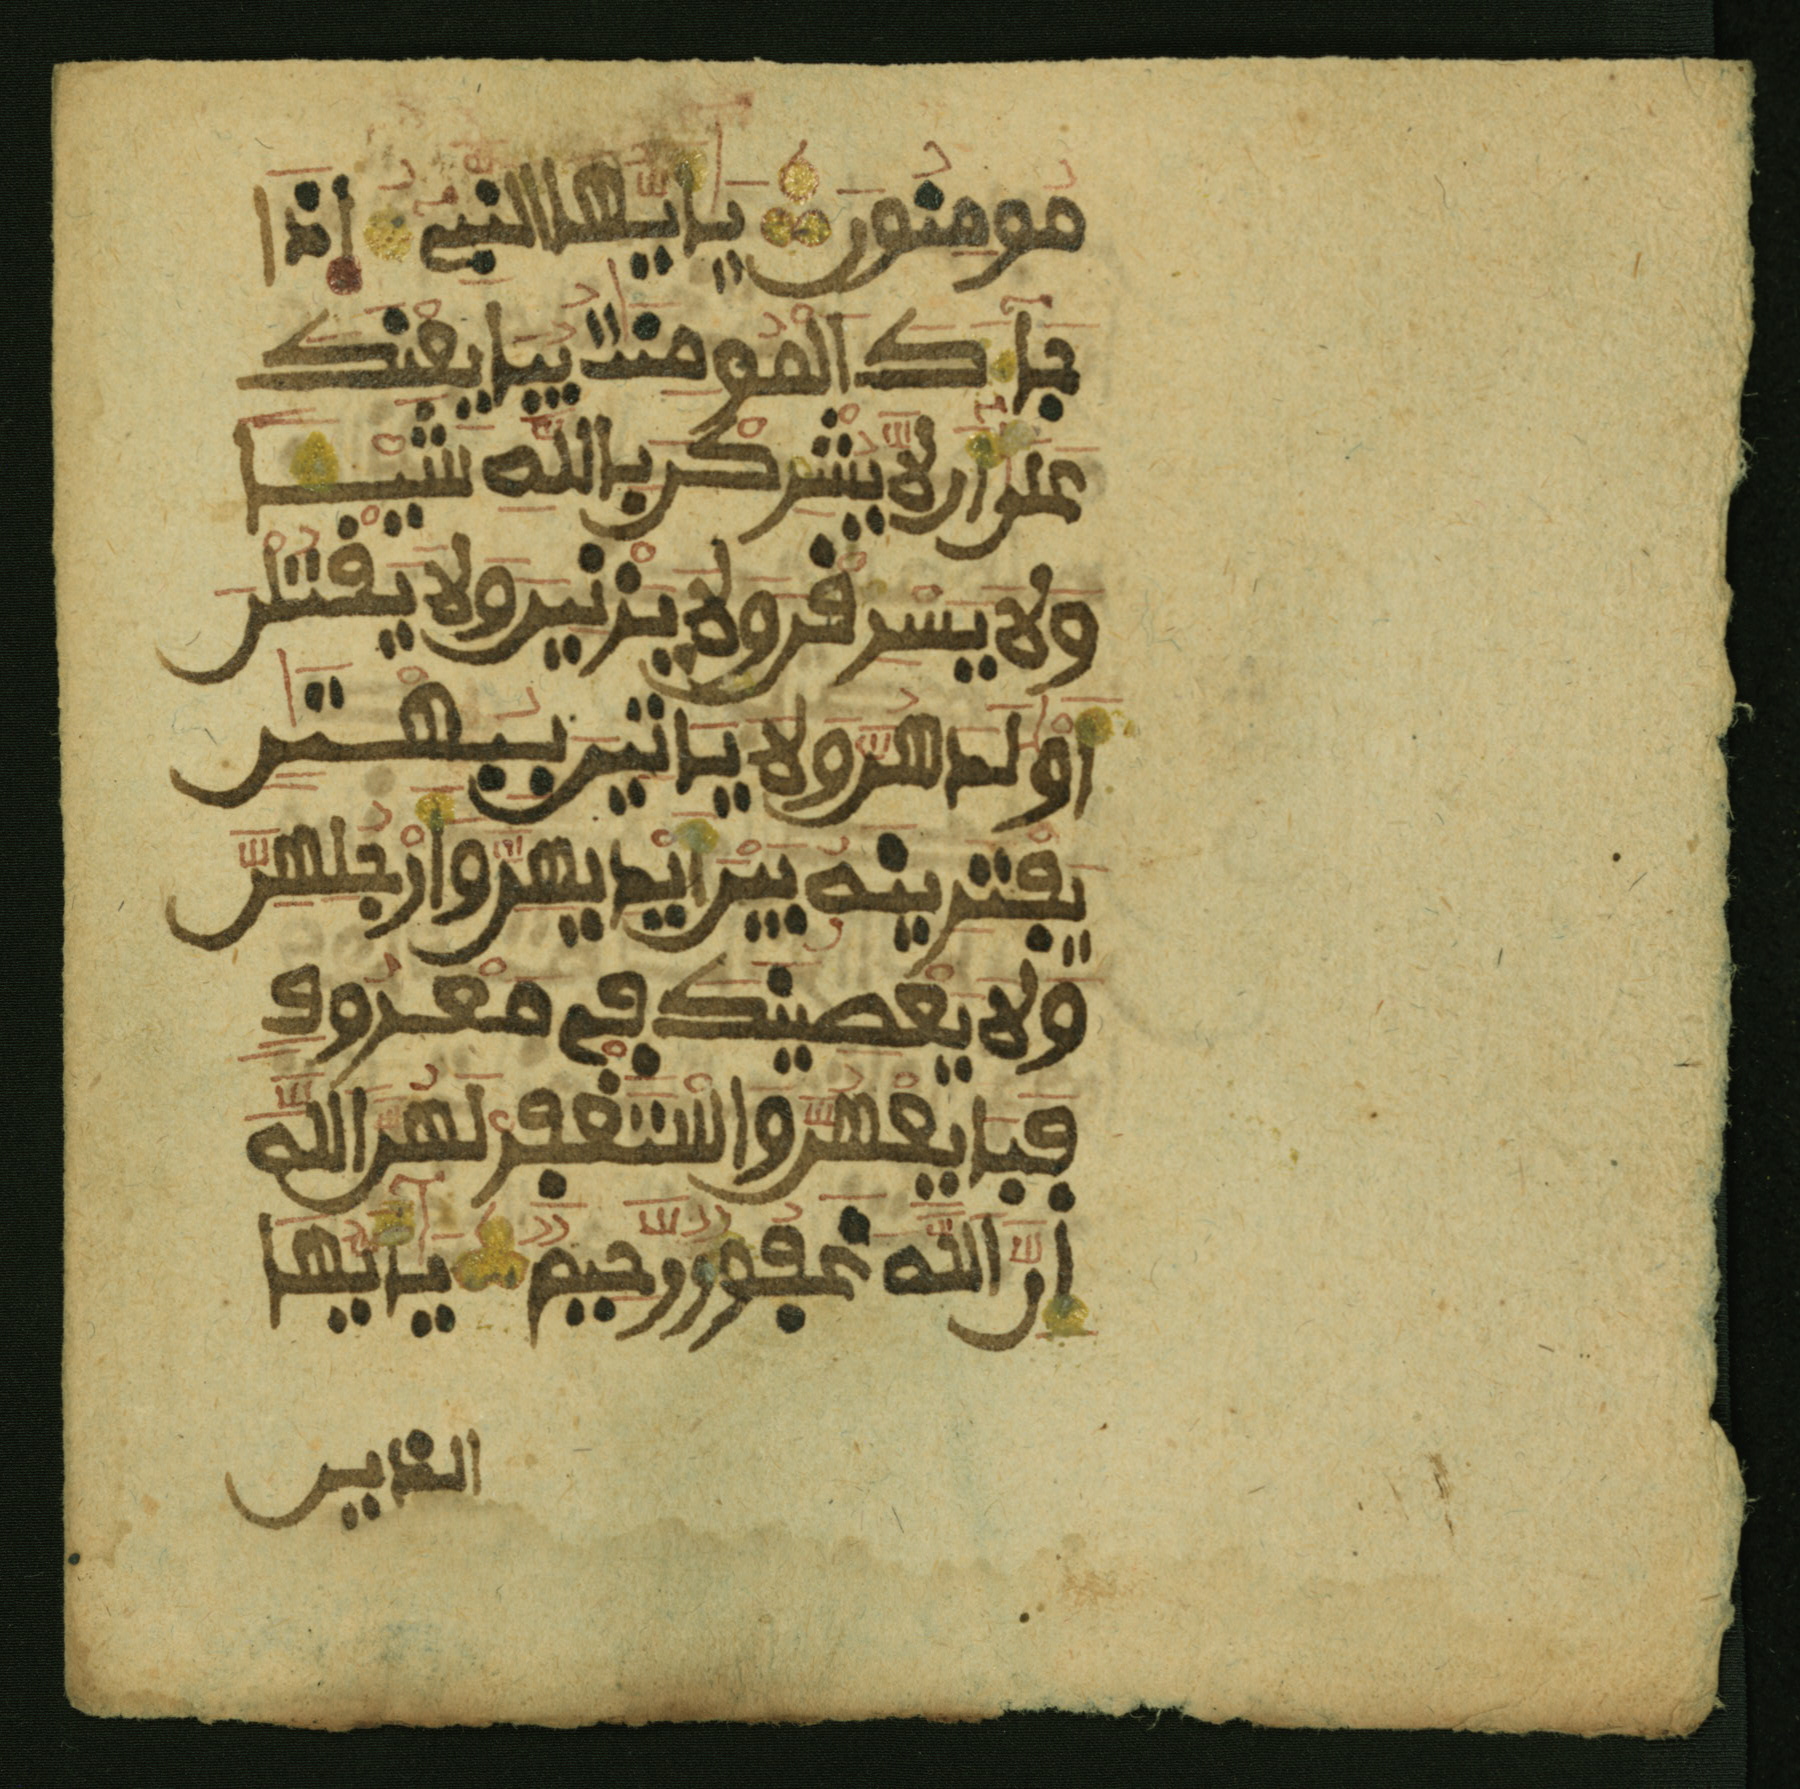 مُومِنُونَ يَٰأَيُّهَا ٱلنَّبِيُّ إِذَا
جَآءَكَ ٱلْمُومِنَٰتُ يُبَايِعْنَكَ
عَلَىٰٓ أَن لَّا يُشْرِكْنَ بِٱللَّهِ شَيْـًٔا
وَلَا يَسْرِقْنَ وَلَا يَزْنِينَ وَلَا يَقْتُلْنَ
أَوْلَٰدَهُنَّ وَلَا يَاتِينَ بِبُهْتَٰنٍ
يَفْتَرِينَهُۥ بَيْنَ أَيْدِيهِنَّ وَأَرْجُلِهِنَّ
وَلَا يَعْصِينَكَ فِي مَعْرُوفٍ
فَبَايِعْهُنَّ وَٱسْتَغْفِرْ لَهُنَّ ٱللَّهَ
إِنَّ ٱللَّهَ غَفُورٌ رَّحِيمٌ يَٰأَيُّهَا
الذين